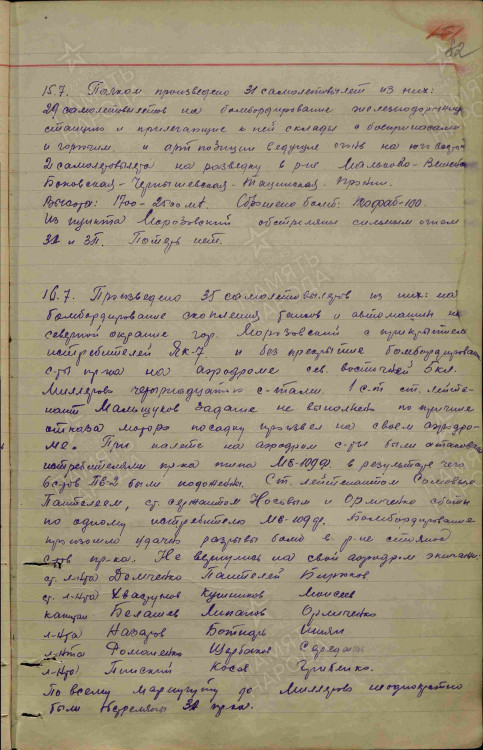 151
82
15.7. Полком произведено 31 самолетовылет из них:
29 самолетовылетов на бомбардирование железнодорожную
станцию и прилегающие к ней склады с боеприпасами
и горючим и арт. позиции ведущие огонь на
2 самолетовылета на разведку в р-не Мальково-
Боковская-Чернышевская-Тацинская-
Высота: 1700-2500 м. Сброшено бомб: ФАБ-100.
Из пункта Морозовский обстреляны сильным огнем
ЗА и ЗП. Потерь нет.
16.7. Произведено 35 самолетовылетов из них: на
бомбардирование скопления танков и автомашин на
северной окраине гор. Морозовский с прикрытием
истребителей Як-7 и без прикрытие бомбардирован
с-ты пр-ка на аэродроме сев. восточней 5 кл.
Миллерово четырнадцатью с-тами. 1 с-т ст. лейте-
нант Мальщуков задание не выполнен по причине
отказа мотора посадку произвел на своем аэродро-
ме. При налете на аэродром с-ты были атакованы
истребителями пр-ка типа МЕ-109Ф. в результате чего
6 с-тов ПЕ-2 были подожжены. Ст. лейтенантом
Пантелеем, ст. сержантом Носовым и Орличенко сбиты
по одному истребителю МЕ-109Ф. Бомбардирование
произошло удачно разрывы бомб в р-не стоянок
с-тов пр-ка. Не вернулись на свой аэродром экипажи:
ст. л-нта Демченко Пантелей Бирюков
ст. л-нта Хвастунов Кушников Моисеев
капитан Белашев Липатов Орличенко
л-нта Назаров Ботнарь
л-нта Фомаленко Щербаков
л-нта Пинский Косов Грибенко.
По всему маршруту до Миллерово неоднократно
были обстреляны ЗА пр-ка.